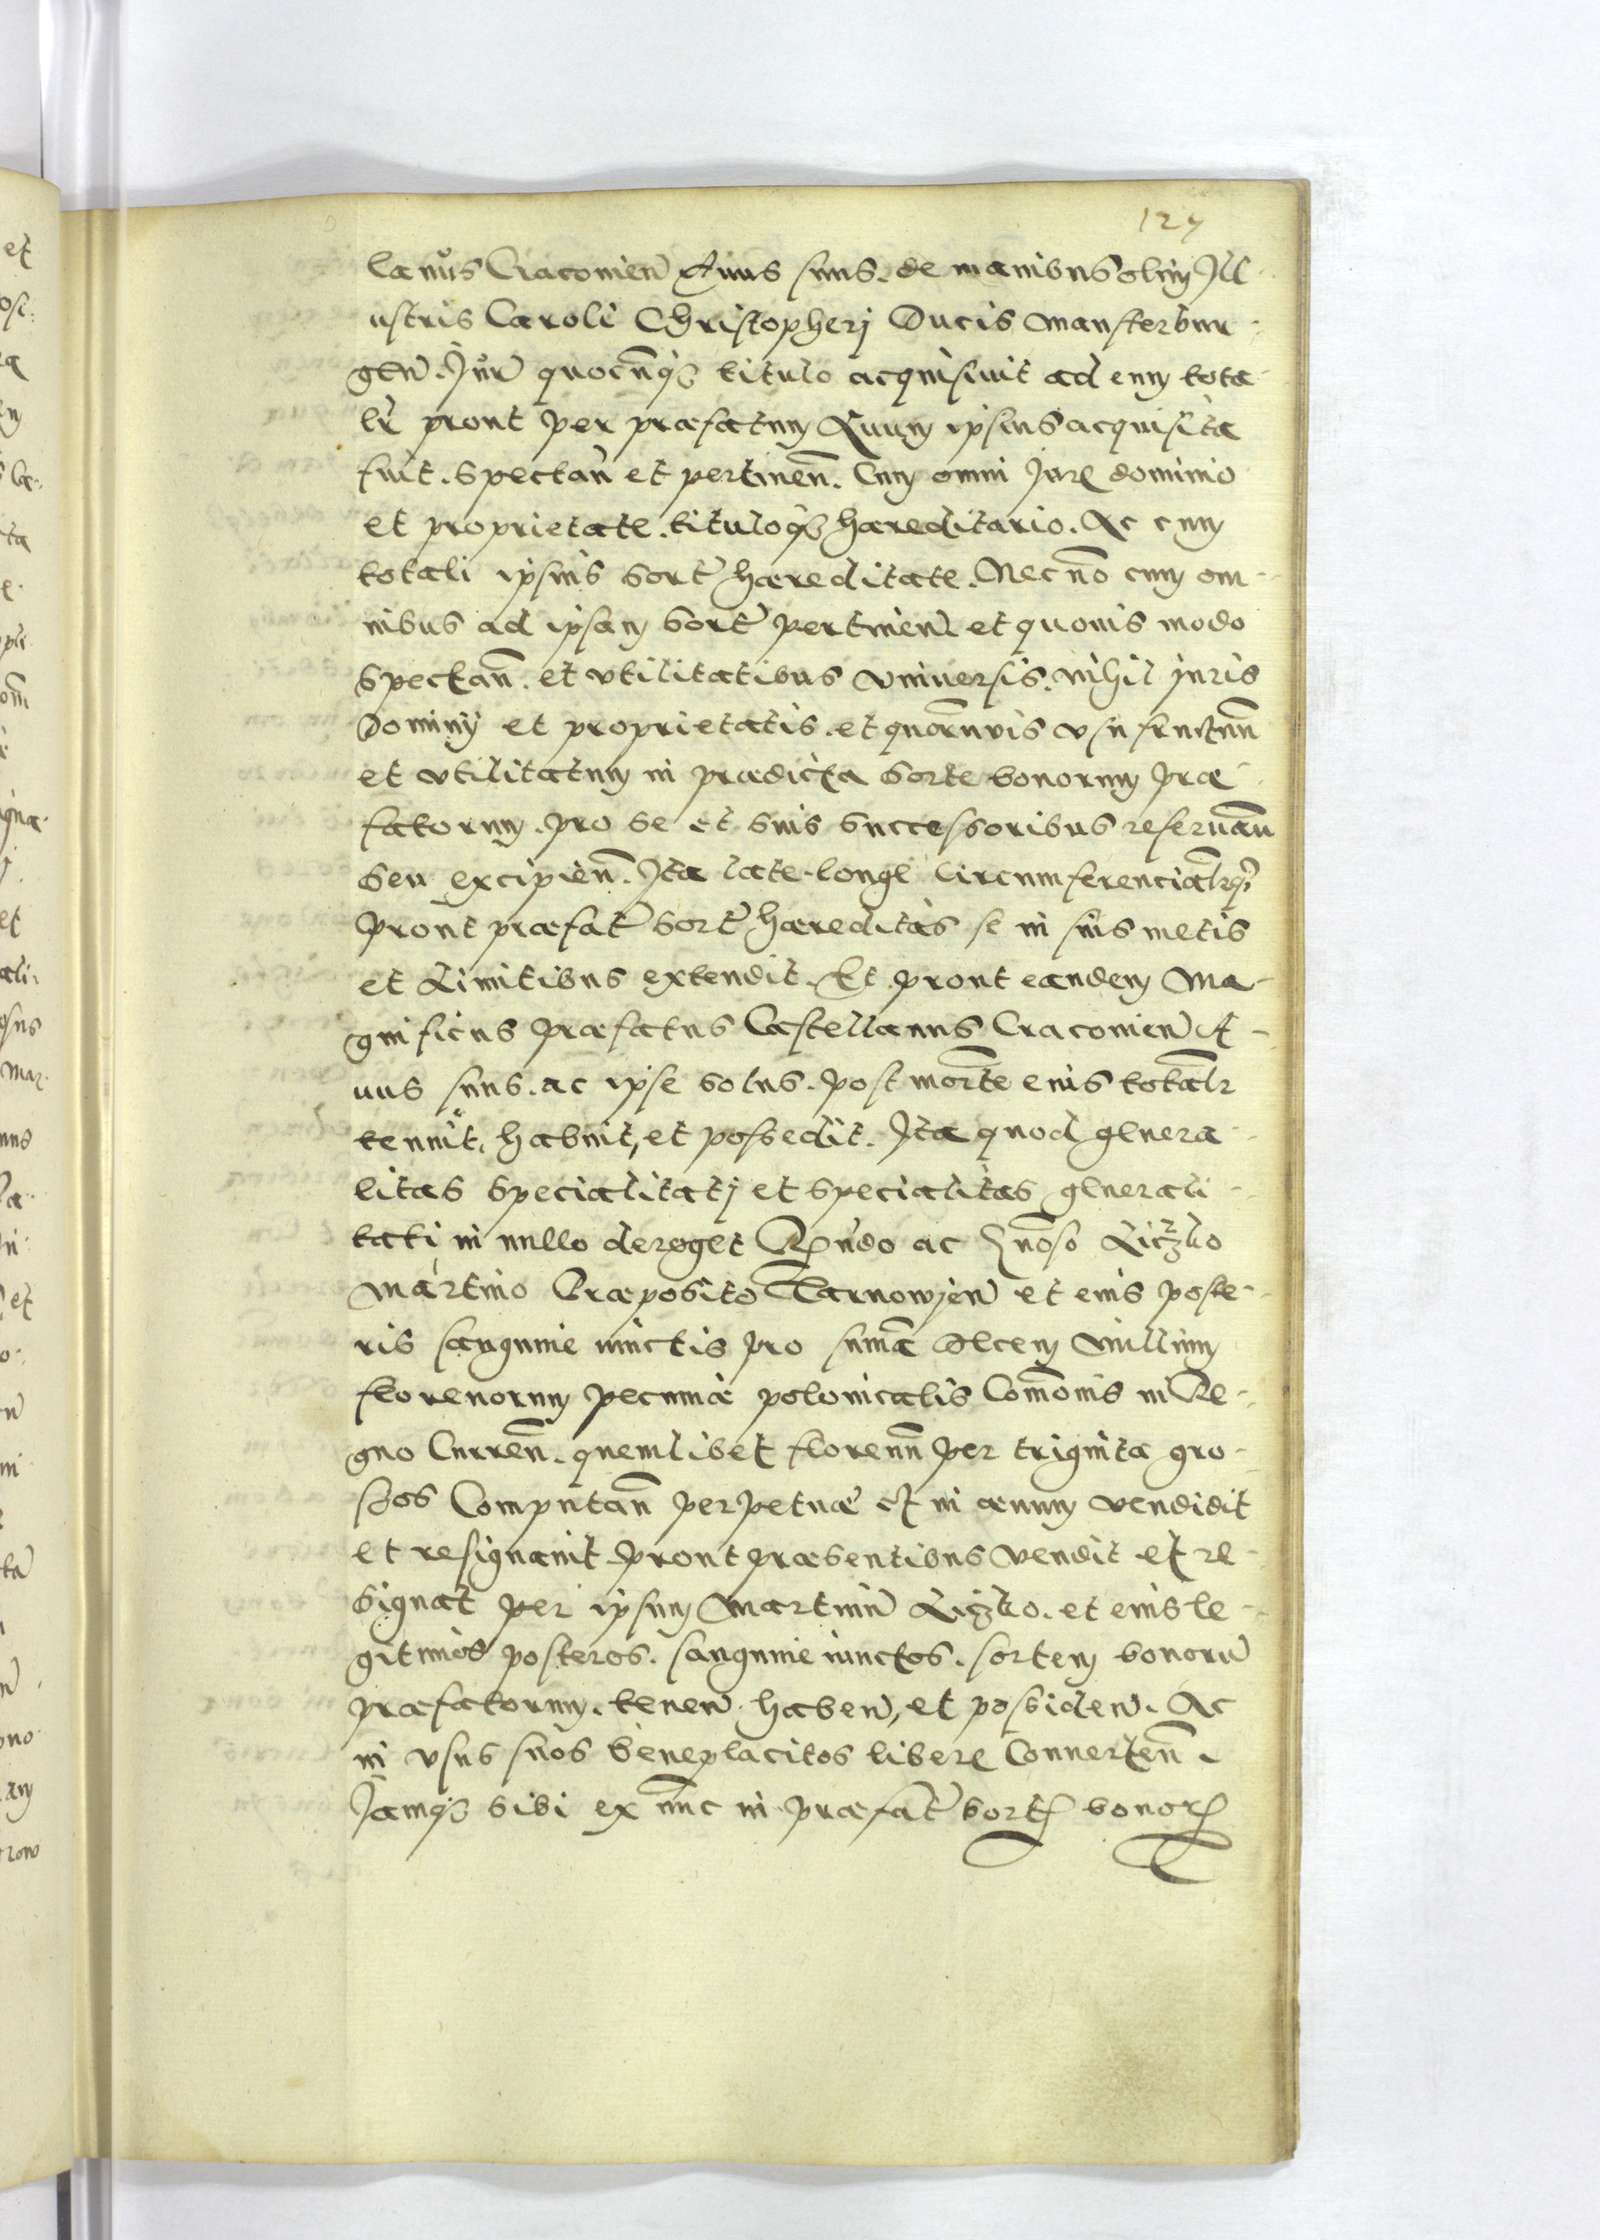 127
lanus Cracovien Auus suus. de manibus olim Ill-
ustris Caroli Christopheri Ducis Mansterbur-
gen. Jure quocunqȝ titulo acquisiuit ad eum tota-
lr prout per præfatum Auum ipsius acquisita
fuit. spectan et pertinen. Cum omni Jure dominio
et proprietate. tituloqȝ hæreditario. Ac cum
totali ipsius sort hæreditate. Necno cum om-
nibus ad ipsam sort pertinen et quouis modo
spectan. et vtilitatibus vniuersis. nihil juris
Dominij et proprietatis. et quorumuis vsufructuum
et vtilitatum in prædicta sorte bonorum præ-
fatorum. pro se et suis successoribus reseruan
seu excipien. Ita late longe Circumferencialrqȝ
prout præfat sort hæreditas se in suis metis
et Limitibus extendit. Et prout eandem Ma-
gnificus præfatus Castellanus Cracovien A-
uus suus. ac ipse solus. post morte eius totalr
tenuit, habuit, et possedit. Ita quod genera-
litas specialitatj et specialitas generali-
tati in nullo deroget Rndo ac Gnoso Liczko
Martino Præposito Tarnowien et eius poste-
ris sanguine iunctis pro suma Decem Millium
florenorum pecuniæ polonicalis Comonis in Re-
gno Curren. quemlibet florenu per triginta gro-
ssos Computan perpetuæ et in æuum vendidit
et resignauit prout præsentibus vendit et re-
signat per ipsum Martinu Liczko. et eius le-
gitimos posteros. sanguine iunctos. sortem bonoru
præfatorum. tenen haben, et possiden. Ac
in vsus suos beneplacitos libere Conuerten.
Jamqȝ sibi ex nunc in præfat sort bonor